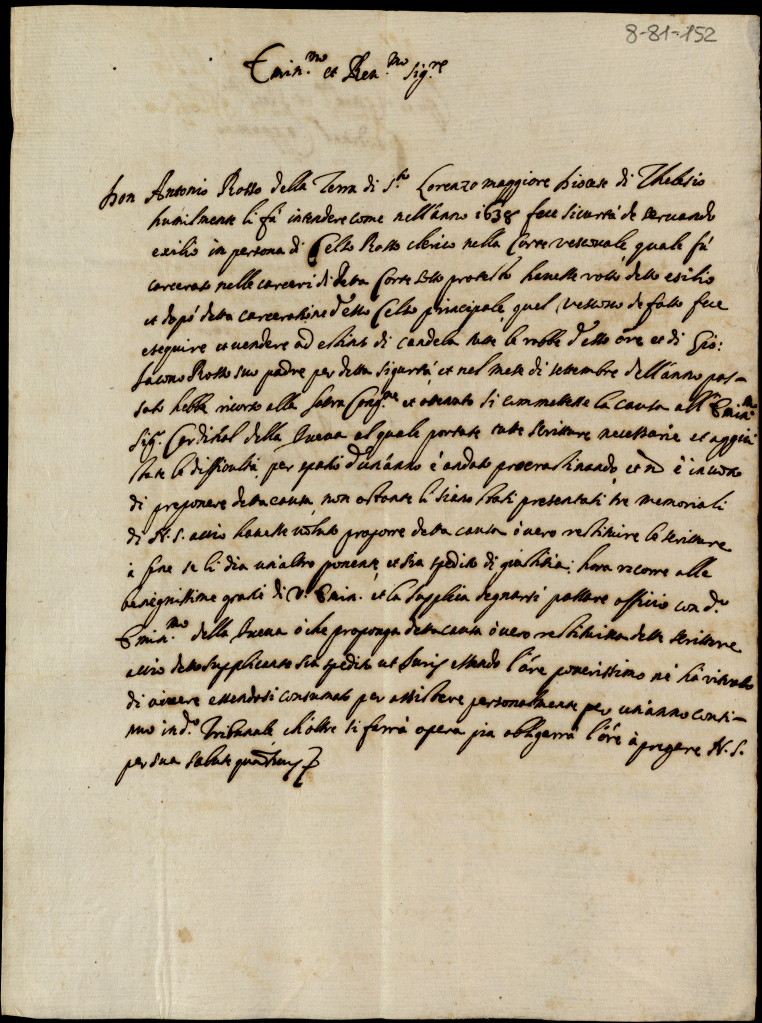 8-81-152
Emin.mo et Reu.mo Sig.re
Don Antonio Rosso della Terra di S.to Lorenzo maggiore Diocese di Thelesio
humilmente li fà intendere come nell'anno 1638 fece sicurtà de seruando
exilio in persona di Celso Rosso clerico nella Corte vescouale quale fù
carcerato nelle carceri di detta Corte sotto protesto hauesse rotto detto esilio
et dopò detta carceratione d'esso Celso principale, quel vescouo de facto fece
eseguire et uendere ad estinto di candela tutte le robbe d'esso ore et di Gio:
Iacouo Rosso suo padre per detta sigurtà, et nel mese di settembre dell'anno pas-
sato hebbe ricorso alla Sacra Cong.ne et ottenuto si commettesse la causa all' Emin.mo
Sig. Cardinal della Queua al quale portate tutte scritture necessarie et aggiu
state le difficultà, per spatio d'un'anno è andato procrastinando, et
di preponere detta causa non ostante li siano stati presentati tre memoriali
di N. S. acciò hauesse voluto proporre detta causa ò uero restituire le scritture
à fine se li dia un'altro ponente, et sia spedito di giustitia; hora ricorre alla
benignissima gratia di V. Emin. et la supplica degnarsi passare officio con d.o
Emin.mo della Queua ò che proponga detta causa ò uero restituisca dette scritture
acciò detto supplicante sia spedito ut Iuris essendo l'ore pouerissimo nè hà
di uiuere essendosi consumato per assistere personalmente per un'anno conti-
nuo in d.o Tribunale, ch'oltre si farrà opera pia obligarrà l'ore à pregare N. S.
per sua salute